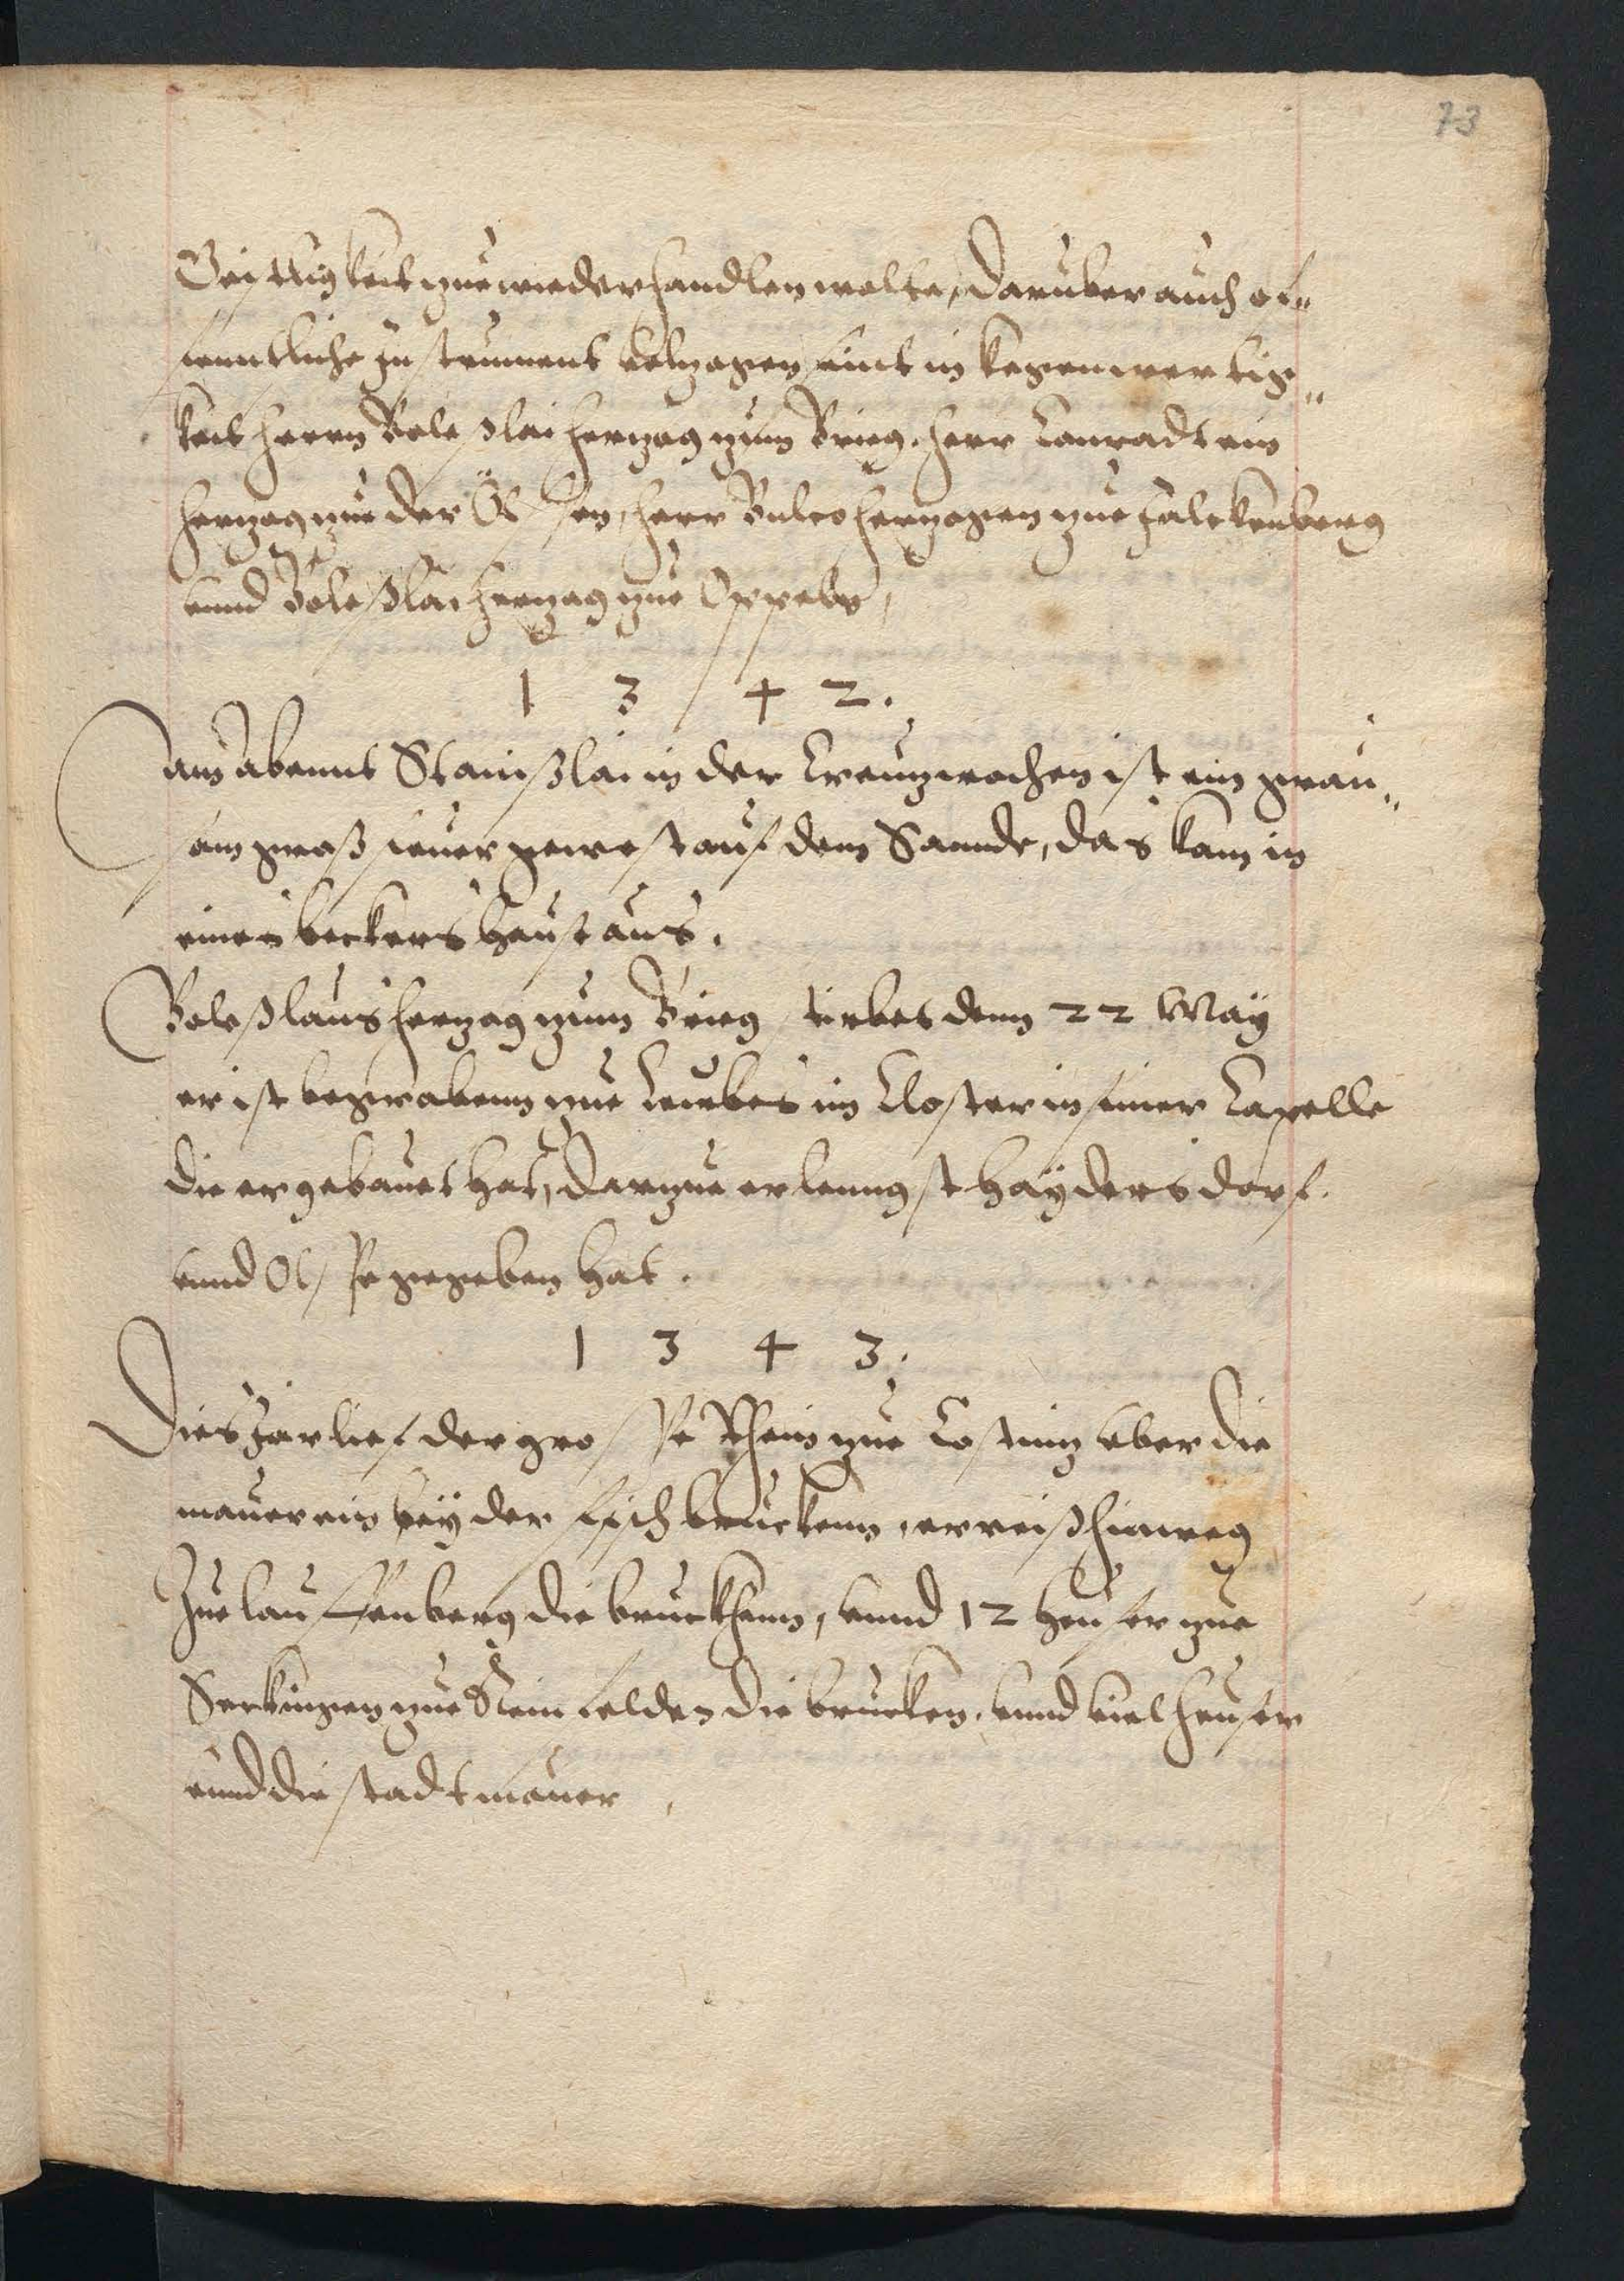 73
Geistligkeit zue wieder handlen wolte, darüber auch of„
fenntliche Instrument volzogen sint in kegenwertig„
keit herrn Boleßlai herzog zum Brieg. herr Conradt ein
herzog zue der Ölssen, herr Bulco herzogen zue Falckenberg
vnnd Boleßlai herzog zue Oppeln,
1 3 4 2.
Am abennt Stanißlai in der Creuzwochen ist ein grau„
sam groß feuer gewest auf dem Sannde, das kam in
eines beckers haus aus.
Boleßlaus herzog zum Brieg stirbet denn 22 May
er ist begrabenn zue Leubes im Closter in seiner Capelle
die er gebauet hat, darzue er lenngst Haydersdorf.
vnnd Olsse gegeben hat.
1 3 4 3.
Dies Jar lief der grosse Rhein zue Costniz vber die
mauer ein bey der fischbruckenn, er reiß hinweg
Zue lauffenberg die bruckhenn, vnnd 12 heuser zue
Seckingen zue Reinfelden die brucken. vnnd viel heuser
vnnd die stadtmauer,